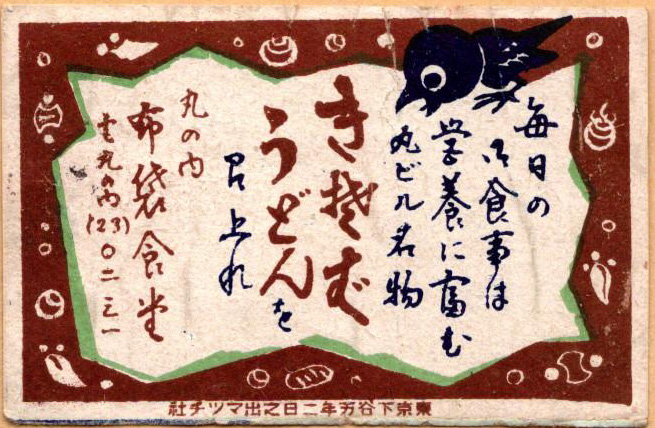 毎日の
御食事は
栄養に富む
丸ビル名物
きそば
うどんを
召上れ
丸の内
布袋食堂
電丸の内(23)〇二三一
東京下谷万年二日之出マツチ社